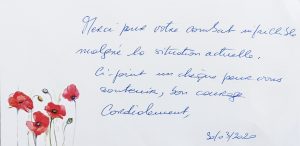 Merci pour votre combat infaillible
malgré la situation actuelle.
Ci-joint un chèque pour vous
soutenir, bon courage
Cordialement,
30/03/2020